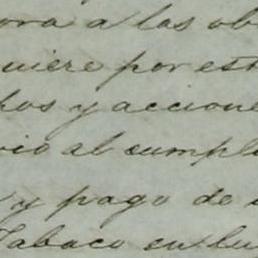 ora a los ob
uiere por est
hos y accione
io al cumpl
y pago de
Tabaco en bu